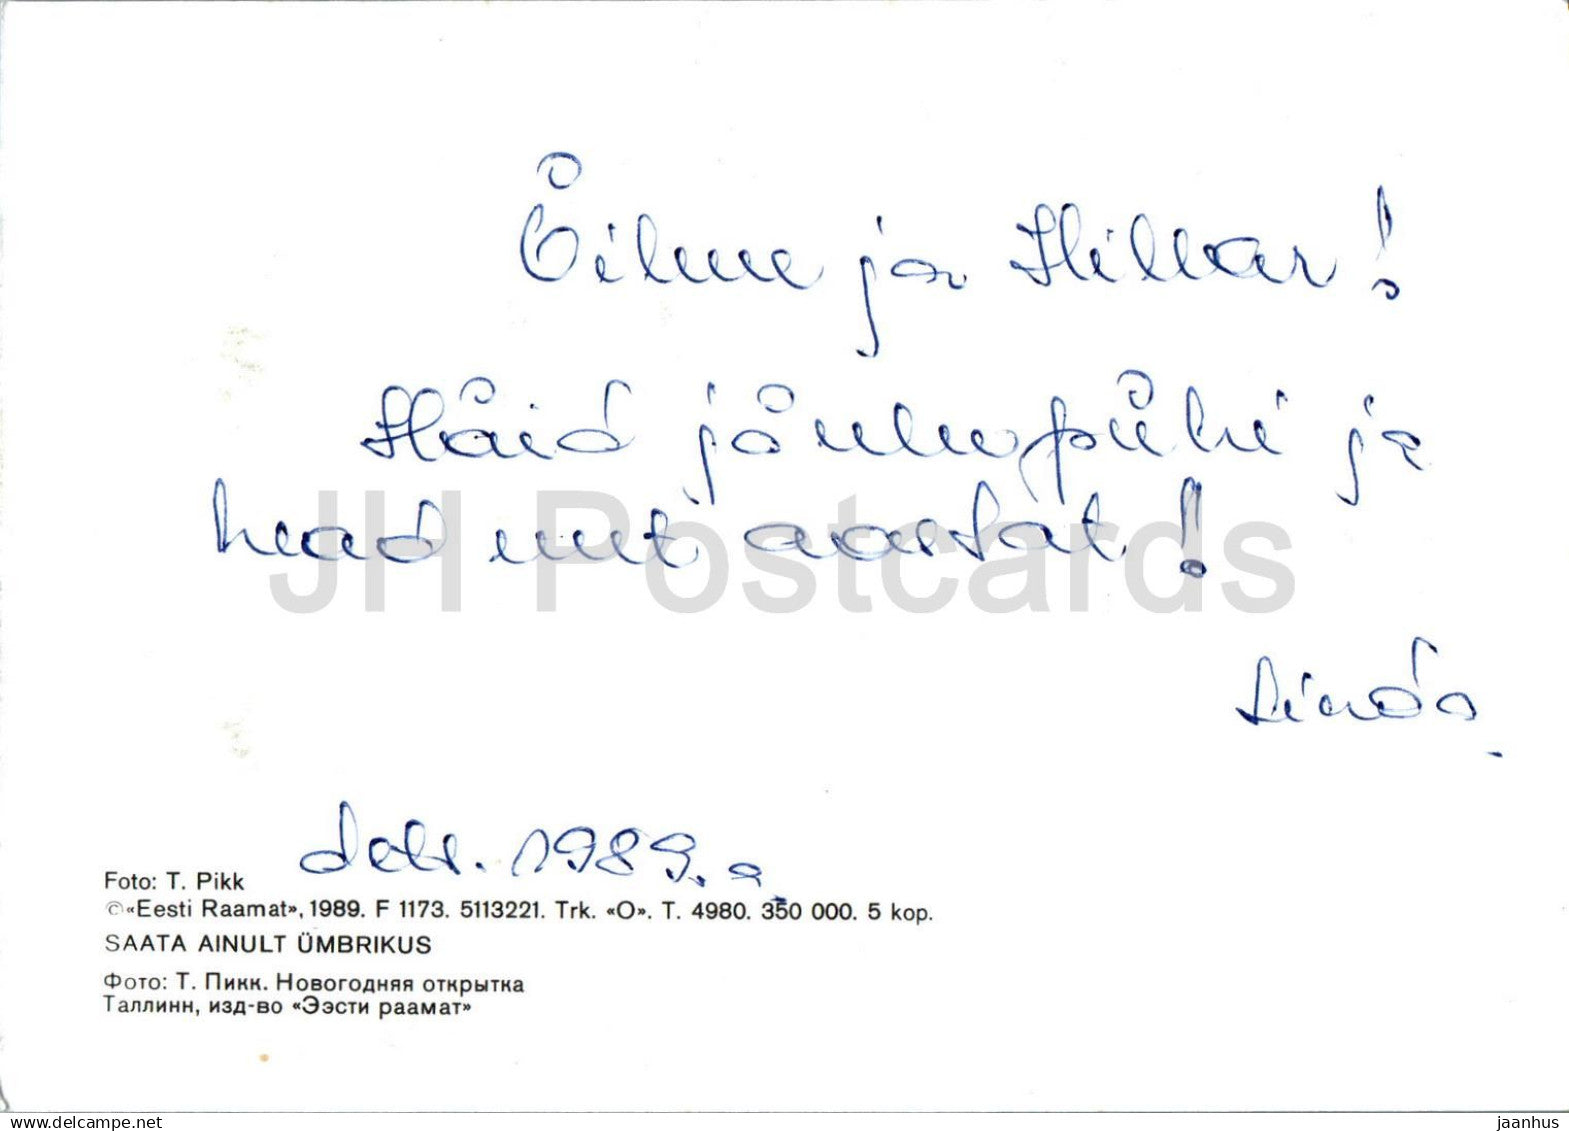 Õilme ja Hillar!
Häid jõulupühi ja
head uut aastat!
Linda
dets. 1989. a
Foto: T. Pikk
©«Eesti Raamat», 1989. F 1173. 5113221. Trk. «O». T. 4980. 350 000. 5 kop.
SAATA AINULT ÜMBRIKUS
Фото: Т. Пикк. Новогодняя открытка
Таллинн, изд-во «Ээсти раамат»
JH Postcards
www.delcampe.net
jaanhus